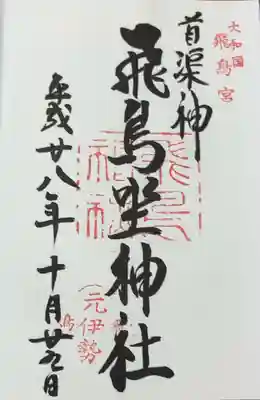 大和国
飛鳥宮
首渠神
飛鳥坐神社
飛鳥
神社
(元伊勢)
平成廿八年十月廿九日